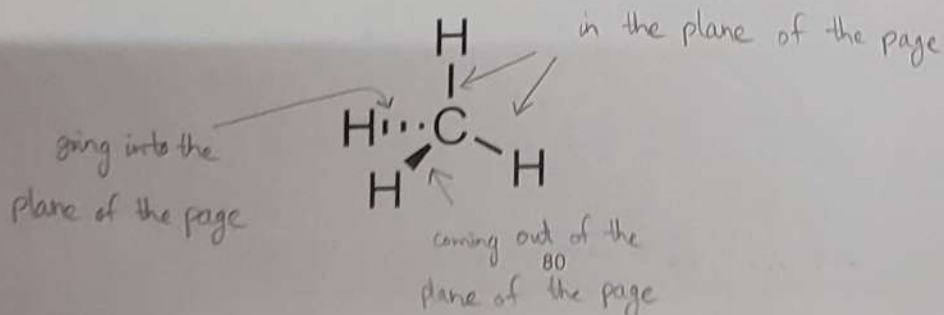 in the plane of the page
H
going into the
plane of the page
H C
H H
coming out of the
80
plane of the page